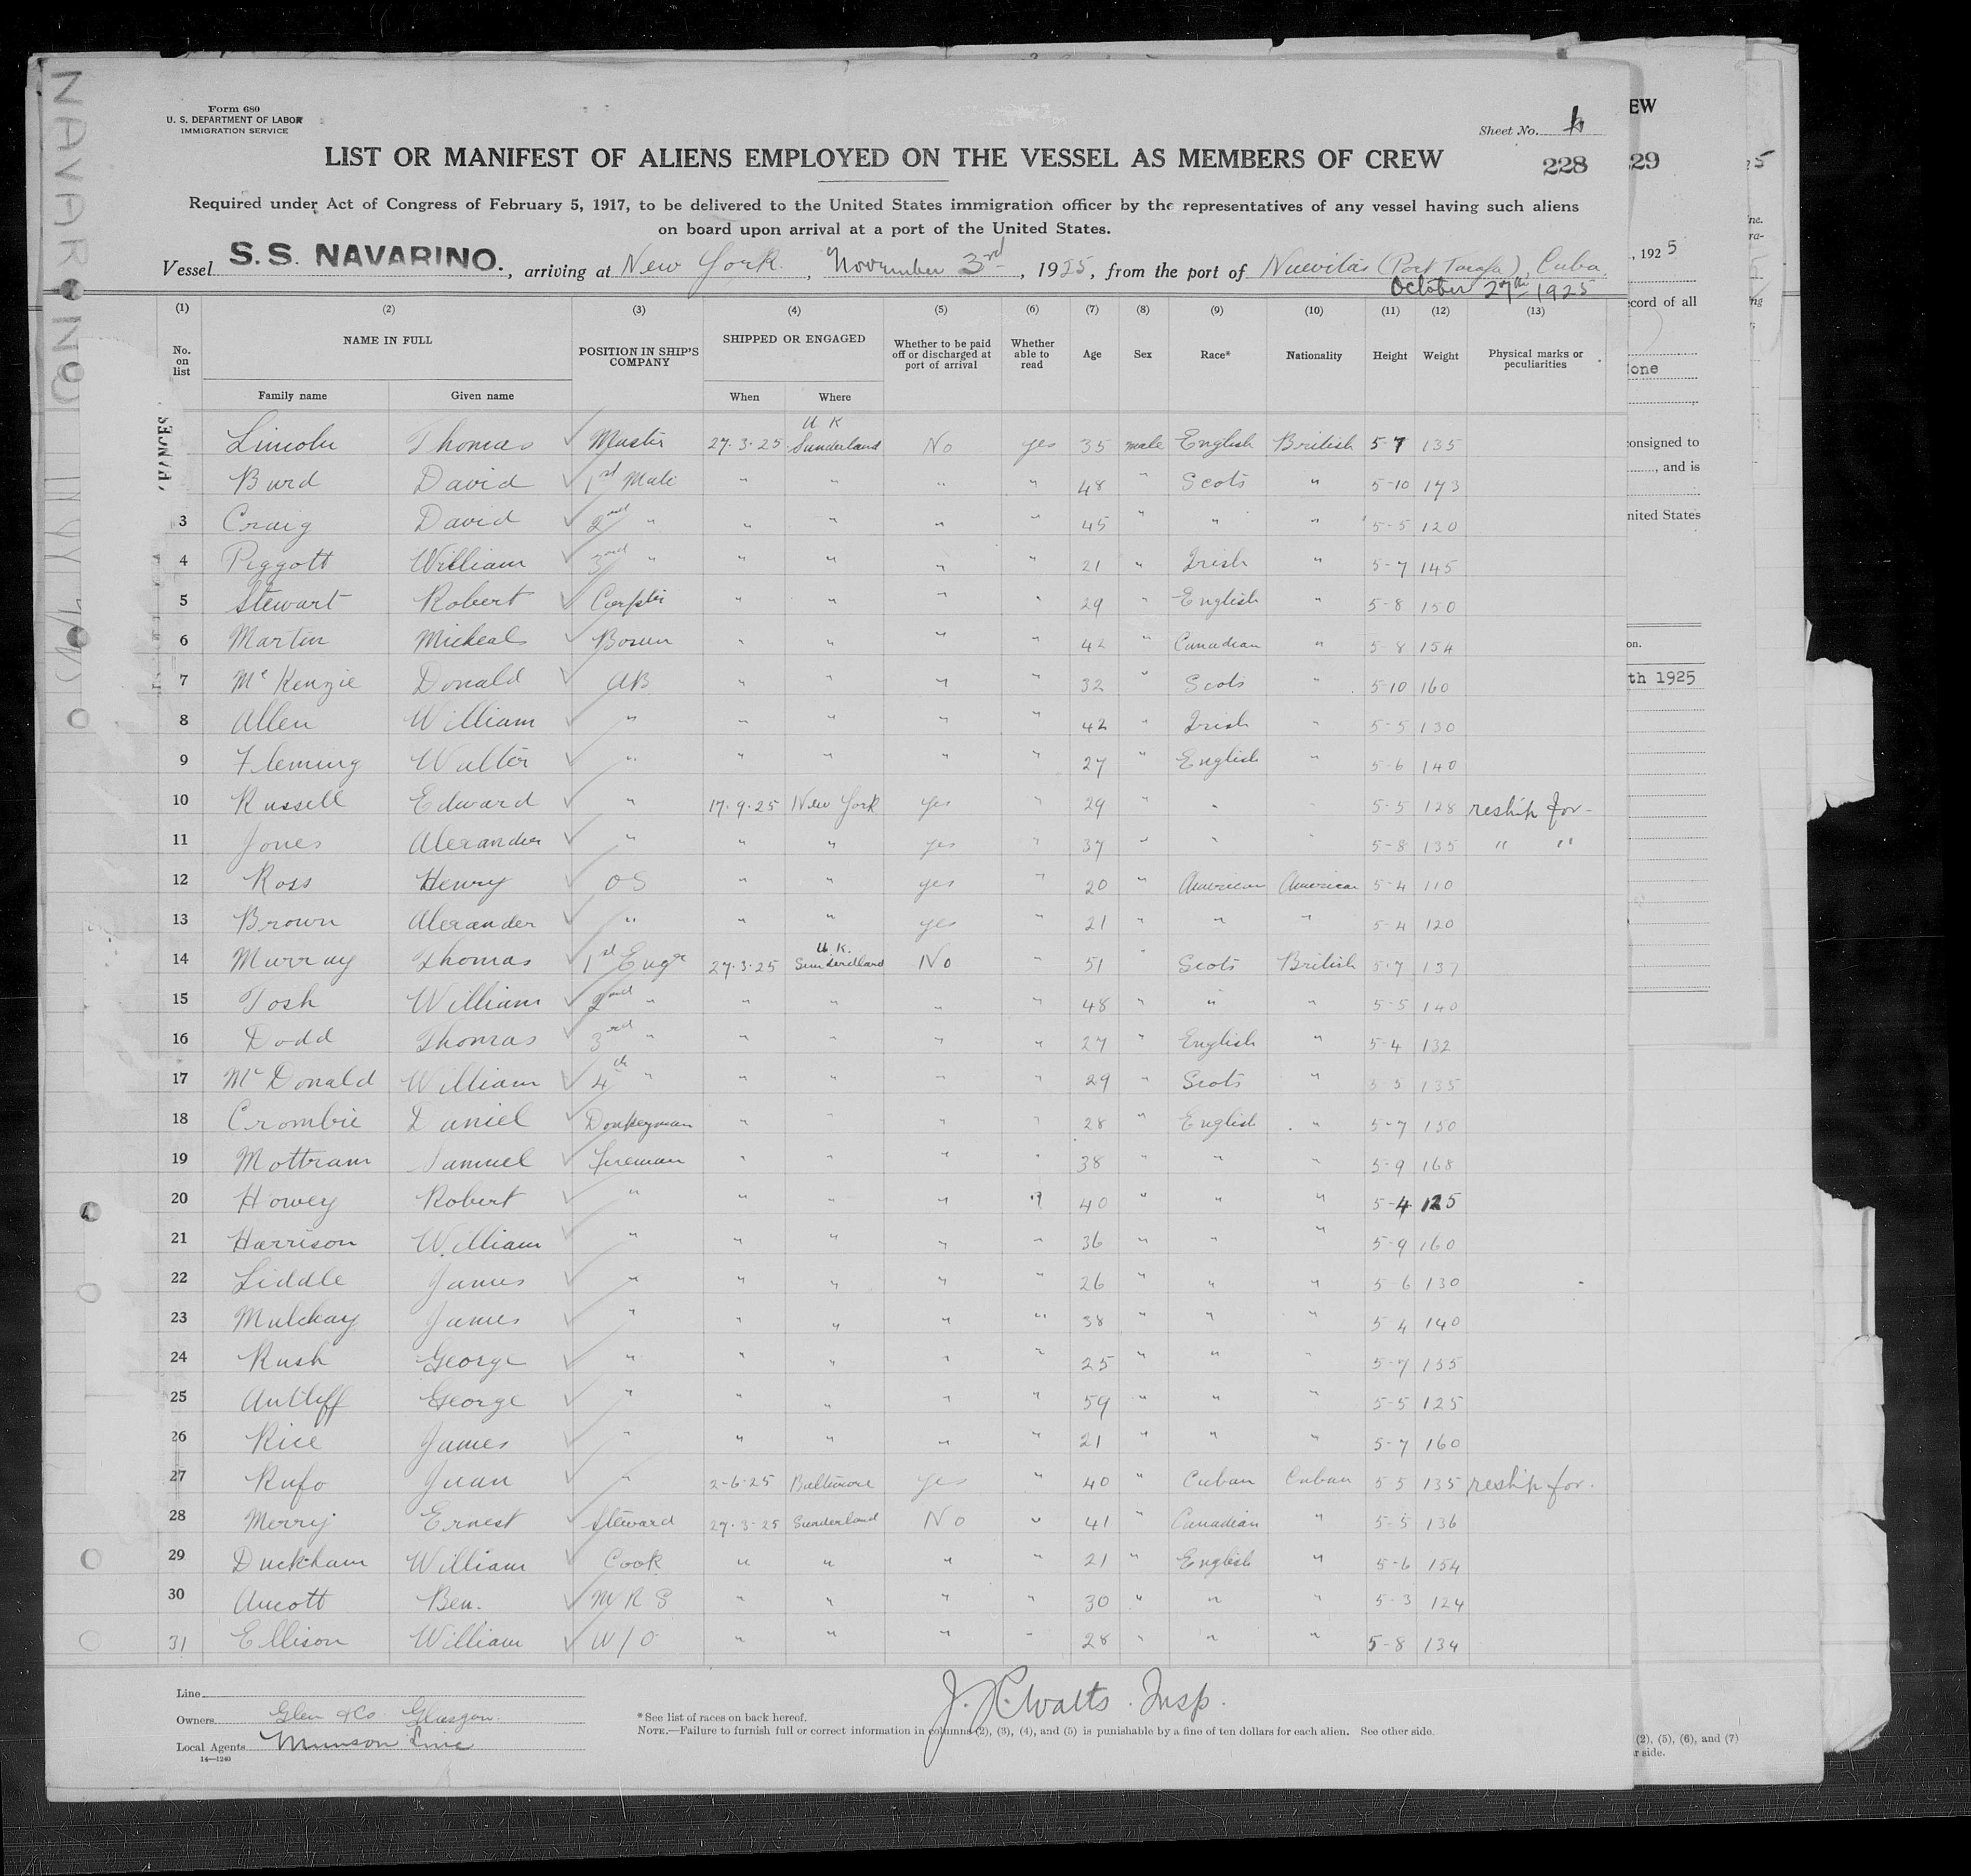 NAVARINO
Form 680
U. S. DEPARTMENT OF LABOR
IMMIGRATION SERVICE
Sheet No.
LIST OR MANIFEST OF ALIENS EMPLOYED ON THE VESSEL AS MEMBERS OF CREW
228
Required under Act of Congress of February 5, 1917, to be delivered to the United States immigration officer by the representatives of any vessel having such aliens
on board upon arrival at a port of the United States.
Vessel S.S. NAVARINO., arriving at New York, November 3rd, 1925, from the port of Nuevitas (Port Tarafa), Cuba.
October 27th 1925
(1) (2) (3) (4) (5) (6) (7) (8) (9) (10) (11) (12) (13)
No. on list NAME IN FULL Family name Given name POSITION IN SHIP'S COMPANY SHIPPED OR ENGAGED When Where Whether to be paid off or discharged at port of arrival Whether able to read Age Sex Race* Nationality Height Weight Physical marks or peculiarities
Lincoln Thomas Master 27-3-25 U K Sunderland No yes 35 male English British 5-7 135
Burd David 1st Mate " " " " 48 " Scots " 5-10 173
3 Craig David 2nd " " " " " 45 " " " 5-5 120
4 Piggott William 3rd " " " " " 21 " Irish " 5-7 145
5 Stewart Robert Carptr " " " " 29 " English " 5-8 150
6 Martin Micheal Bosun " " " " 42 " Canadian " 5-8 154
7 McKenzie Donald AB " " " " 32 " Scots " 5-10 160
8 Allen William " " " " " 42 " Irish " 5-5 130
9 Fleming Walter " " " " " 27 " English " 5-6 140
10 Russell Edward " 17-9-25 New York yes " 29 " " " 5-5 128 reship for-
11 Jones Alexander " " " yes " 37 " " " 5-8 135 " "
12 Ross Henry OS " " yes " 20 " American American 5-4 110
13 Brown Alexander " " " yes " 21 " " " 5-4 120
14 Murray Thomas 1st Engr 27-3-25 U.K. Sunderland No " 51 " Scots British 5-7 137
15 Tosh William 2nd " " " " " 48 " " " 5-5 140
16 Dodd Thomas 3rd " " " " " 27 " English " 5-4 132
17 McDonald William 4th " " " " " 29 " Scots " 5 5 135
18 Crombie Daniel Donkeyman " " " " 28 " English " 5-7 150
19 Mottram Samuel Fireman " " " " 38 " " " 5-9 168
20 Howey Robert " " " " " 40 " " " 5-4 125
21 Harrison William " " " " " 36 " " " 5-9 160
22 Liddle James " " " " " 26 " " " 5-6 130
23 Mulchay James " " " " " 38 " " " 5 4 140
24 Rush George " " " " " 25 " " " 5-7 155
25 Antliff George " " " " " 59 " " " 5-5 125
26 Rice James " " " " " 21 " " " 5-7 160
27 Rufo Juan " 2-6-25 Baltimore yes " 40 " Cuban Cuban 5 5 135 reship for.
28 Merry Ernest Steward 27-3-25 Sunderland No " 41 " Canadian " 5-5 136
29 Duckham William Cook " " " " 21 " English " 5-6 154
30 Aucott Ben. M R S " " " " 30 " " " 5-3 124
31 Ellison William W/O " " " " 28 " " " 5-8 134
Line
Owners Glen & Co Glasgow
Local Agents Munson Line
14—1240
J. Watts. Insp.
*See list of races on back hereof.
NOTE.—Failure to furnish full or correct information in columns (2), (3), (4), and (5) is punishable by a fine of ten dollars for each alien. See other side.
EW
29
, 1925
ecord of all
one
onsigned to
, and is
nited States
on.
th 1925
(2), (5), (6), and (7)
r side.